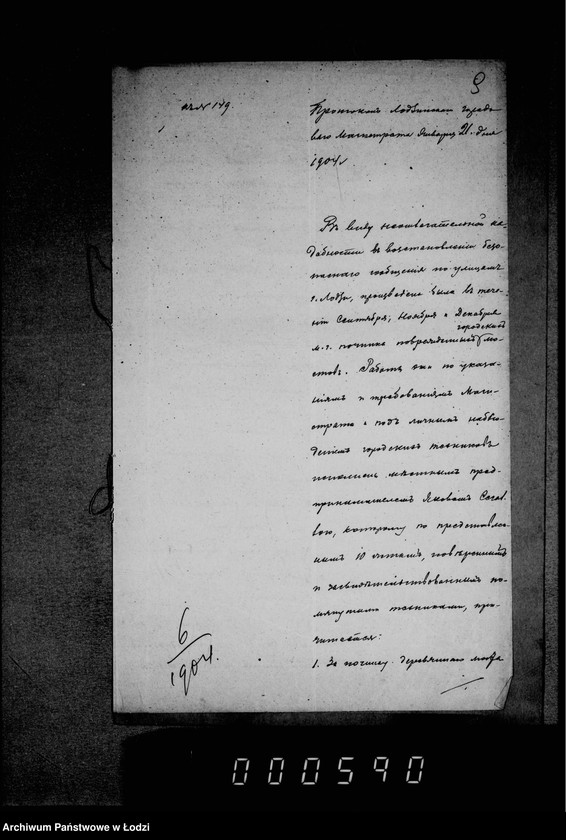 9
Протоколъ Лодзинскаго городо-
ваго Магистрата Января 21 дня
1904 г.
Въ виду неотлагательной на-
добности въ возстановленіи безо-
паснаго сообщенія по улицамъ
г. Лодзи, произведена была въ тече-
ніи Сентября, Ноября и Декабря
м. г. починка поврежденныхъ городскихъ мо-
стовъ. Работы эти по указа-
ніямъ и требованіямъ Маги-
страта и подъ личнымъ наблю-
деніемъ городскихъ техниковъ
исполнены мѣстнымъ пред-
принимателемъ Яковомъ
которому по представлен-
нымъ 10 счетамъ, повѣреннымъ
и засвидѣтельствованнымъ по-
мянутыми техниками, при-
читается:
1. За починку деревяннаго моста
6
1904.
000590
Archiwum Państwowe w Łodzi